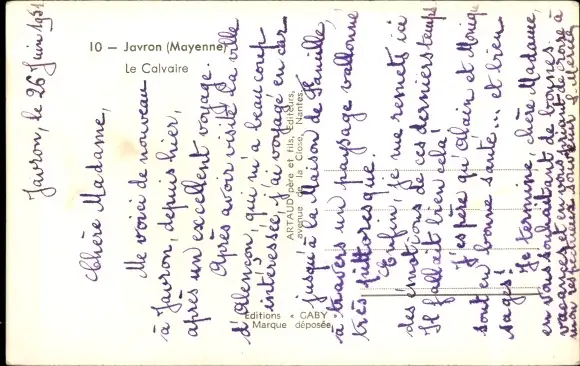 10 — Javron (Mayenne)
Le Calvaire
ARTAUD père et fils, Éditeurs,
avenue de la Close, Nantes.
Editions « GABY »
Marque déposée
Javron, le 26 Juin 1951
Chère Madame,
Me voici de nouveau
à Javron, depuis hier,
après un excellent voyage.
Après avoir visité la ville
d'Alençon, qui m'a beaucoup
intéressée, j'ai voyagé en car
jusqu'à la Maison de Famille,
à travers un paysage vallonné
très pittoresque.
Enfin, je me remets ici
des émotions de ces derniers temps.
Il fallait bien cela!
J'espère qu'Alain et Monique
sont en bonne santé... et bien
sages!
Je termine, chère Madame,
en vous souhaitant de bonnes
vacances et en vous
mon respectueux souvenir.